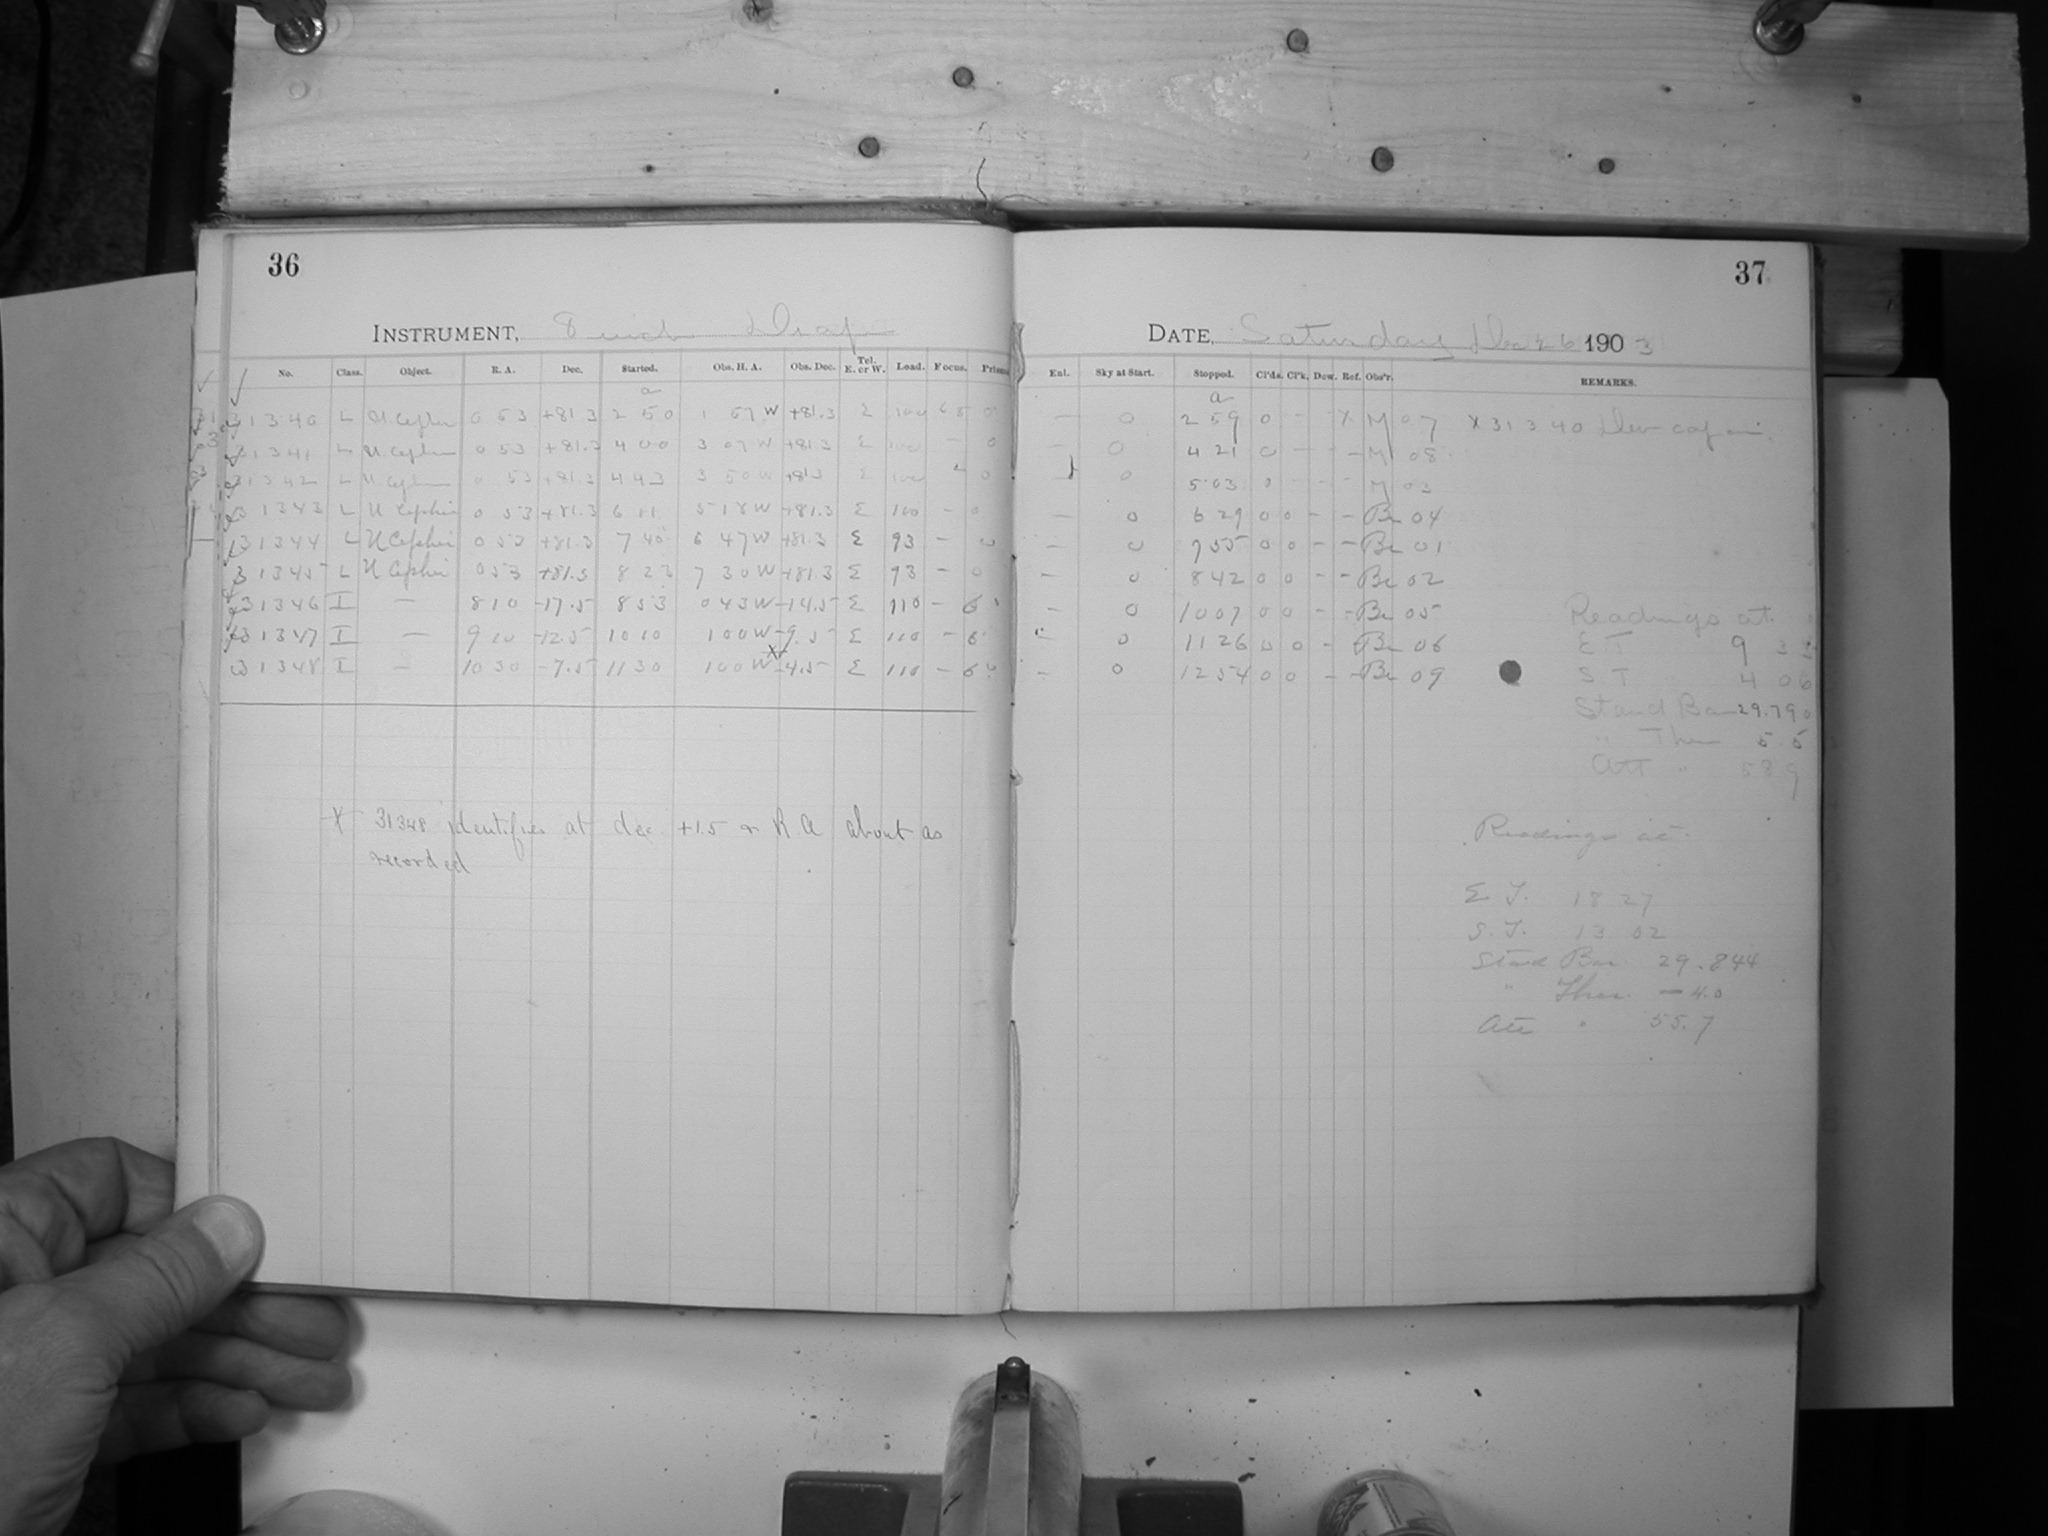 36
INSTRUMENT, 8 inch Draper
No. Class. Object. R. A. Dec. Started. Obs. H. A. Obs. Dec. Tel. E. or W. Load. Focus. Prism
a
31340 L U Cephei 0 53 +81.3 2 50 1 57 W +81.3 E 100 0
31341 L U Cephei 0 53 +81.3 4 00 3 07 W +81.3 E 100 – 0
31342 L U Cephei 0 53 +81.3 4 43 3 50 W +81.3 E 100 0
31343 L U Cephei 0 53 +81.3 6 11 5 18 W +81.3 E 100 – 0
31344 L U Cephei 0 53 +81.3 7 40 6 47 W +81.3 E 93 – 0
31345 L U Cephei 0 53 +81.3 8 23 7 30 W +81.3 E 93 – 0
31346 I — 8 10 -17.5 8 53 0 43 W -14.5 E 110 – 6
31347 I — 9 10 -12.5 10 10 1 00 W -9.5 E 110 – 6
31348 I — 10 30 -7.5 11 30 1 00 W X -4.5 E 110 – 6
X 31348 identifies at dec. +1.5 & R A about as
recorded
37
DATE, Saturday Dec 26 1903
Enl. Sky at Start. Stopped. Cl'ds. Cl'k. Dew. Ref. Obs'r. REMARKS.
a
— 0 2 59 0 – X M 07 X 31340 Dew cap on.
— 0 4 21 0 – – – M 08
0 5 03 0 – – – M 03
— 0 6 29 0 0 – – Br 04
— 0 7 55 0 0 – – Br 01
— 0 8 42 0 0 – – Br 02
— 0 10 07 0 0 – – Br 05
0 11 26 0 0 – Br 06
— 0 12 54 0 0 – – Br 09
Readings at
E T 9 32
S T 4 06
Stand Bar 29.790
" Ther 5.5
Att " 58 9
Readings at
E. T. 18 27
S. T. 13 02
Stand Bar. 29.844
" Ther. – 4.0
Att " 55.7